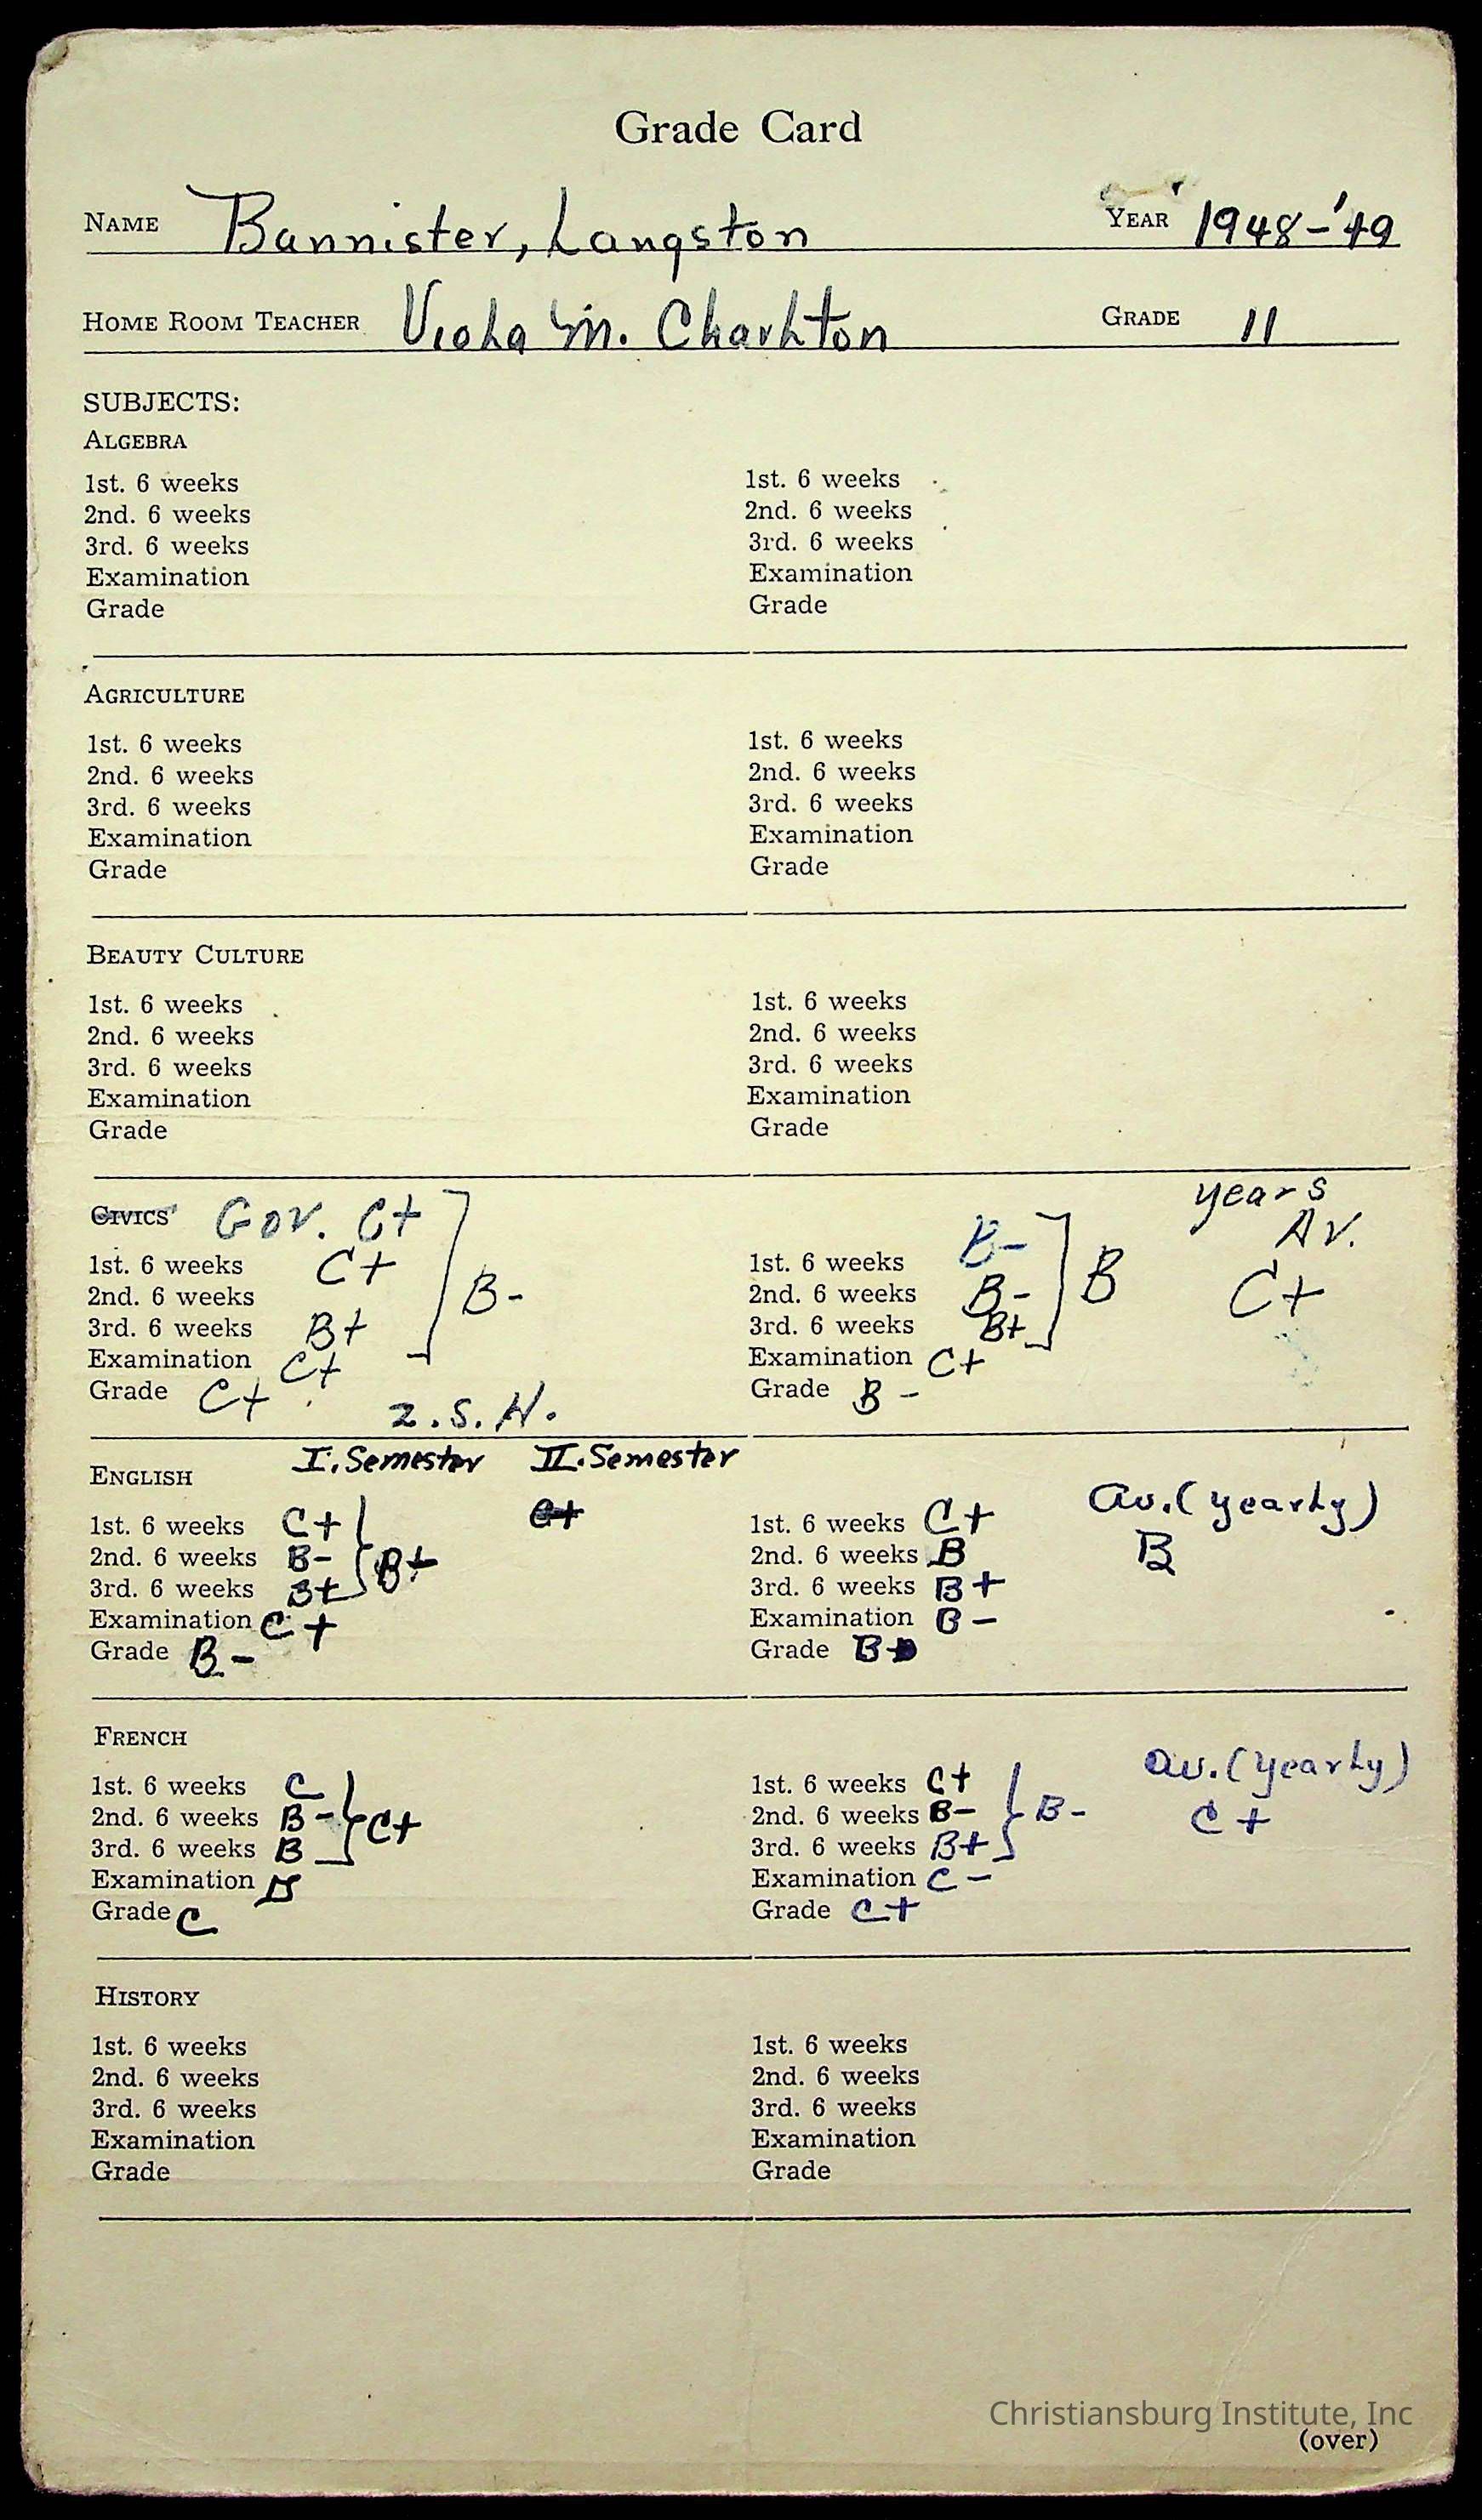 Grade Card
NAME Bannister, Langston YEAR 1948-'49
HOME ROOM TEACHER Viola M. Charlton GRADE 11
SUBJECTS:
ALGEBRA
1st. 6 weeks 1st. 6 weeks
2nd. 6 weeks 2nd. 6 weeks
3rd. 6 weeks 3rd. 6 weeks
Examination Examination
Grade Grade
AGRICULTURE
1st. 6 weeks 1st. 6 weeks
2nd. 6 weeks 2nd. 6 weeks
3rd. 6 weeks 3rd. 6 weeks
Examination Examination
Grade Grade
BEAUTY CULTURE
1st. 6 weeks 1st. 6 weeks
2nd. 6 weeks 2nd. 6 weeks
3rd. 6 weeks 3rd. 6 weeks
Examination Examination
Grade Grade
years
CIVICS Gov. C+ Av.
1st. 6 weeks C+ 1st. 6 weeks B-
2nd. 6 weeks B- 2nd. 6 weeks B- B C+
3rd. 6 weeks B+ 3rd. 6 weeks B+
Examination C+ Examination C+
Grade C+ Grade B-
Z.S.H.
ENGLISH I. Semester II. Semester
1st. 6 weeks C+ C+ 1st. 6 weeks C+ av. (yearly)
2nd. 6 weeks B- B+ 2nd. 6 weeks B B
3rd. 6 weeks B+ 3rd. 6 weeks B+
Examination C+ Examination B-
Grade B- Grade B
FRENCH
1st. 6 weeks C 1st. 6 weeks C+ av. (yearly)
2nd. 6 weeks B- C+ 2nd. 6 weeks B- B- C+
3rd. 6 weeks B 3rd. 6 weeks B+
Examination Examination C-
Grade C Grade C+
HISTORY
1st. 6 weeks 1st. 6 weeks
2nd. 6 weeks 2nd. 6 weeks
3rd. 6 weeks 3rd. 6 weeks
Examination Examination
Grade Grade
Christiansburg Institute, Inc
(over)